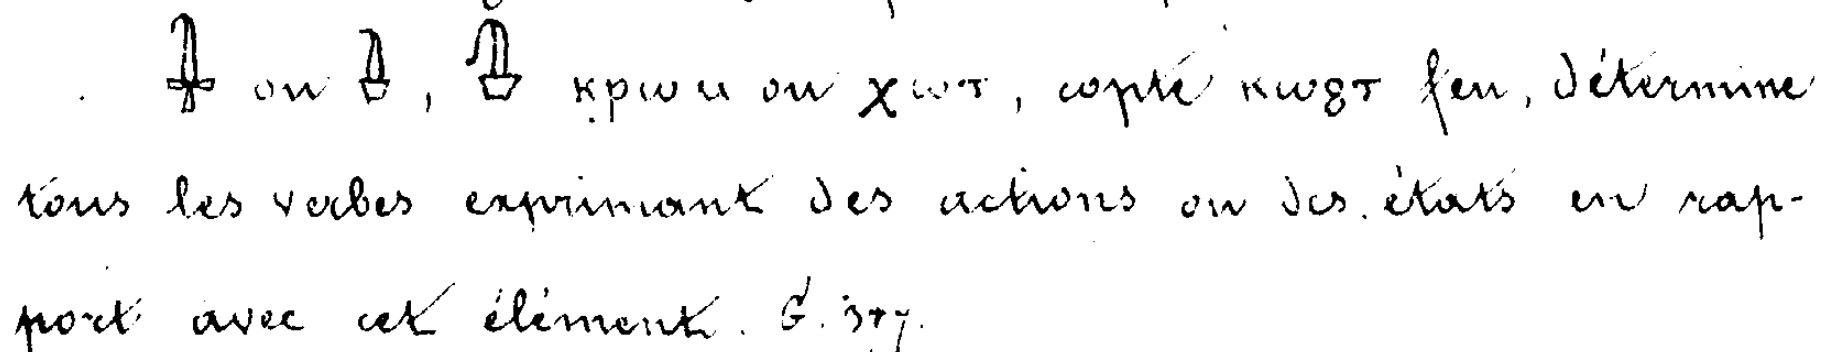 𓊮 ou 𓊮, 𓊮 ⲕⲣⲱⲙ ou ⲭⲱⲧ, copte ⲕⲱϩⲧ feu, détermine
tous les verbes exprimant des actions ou des états en rap-
port avec cet élément. G.